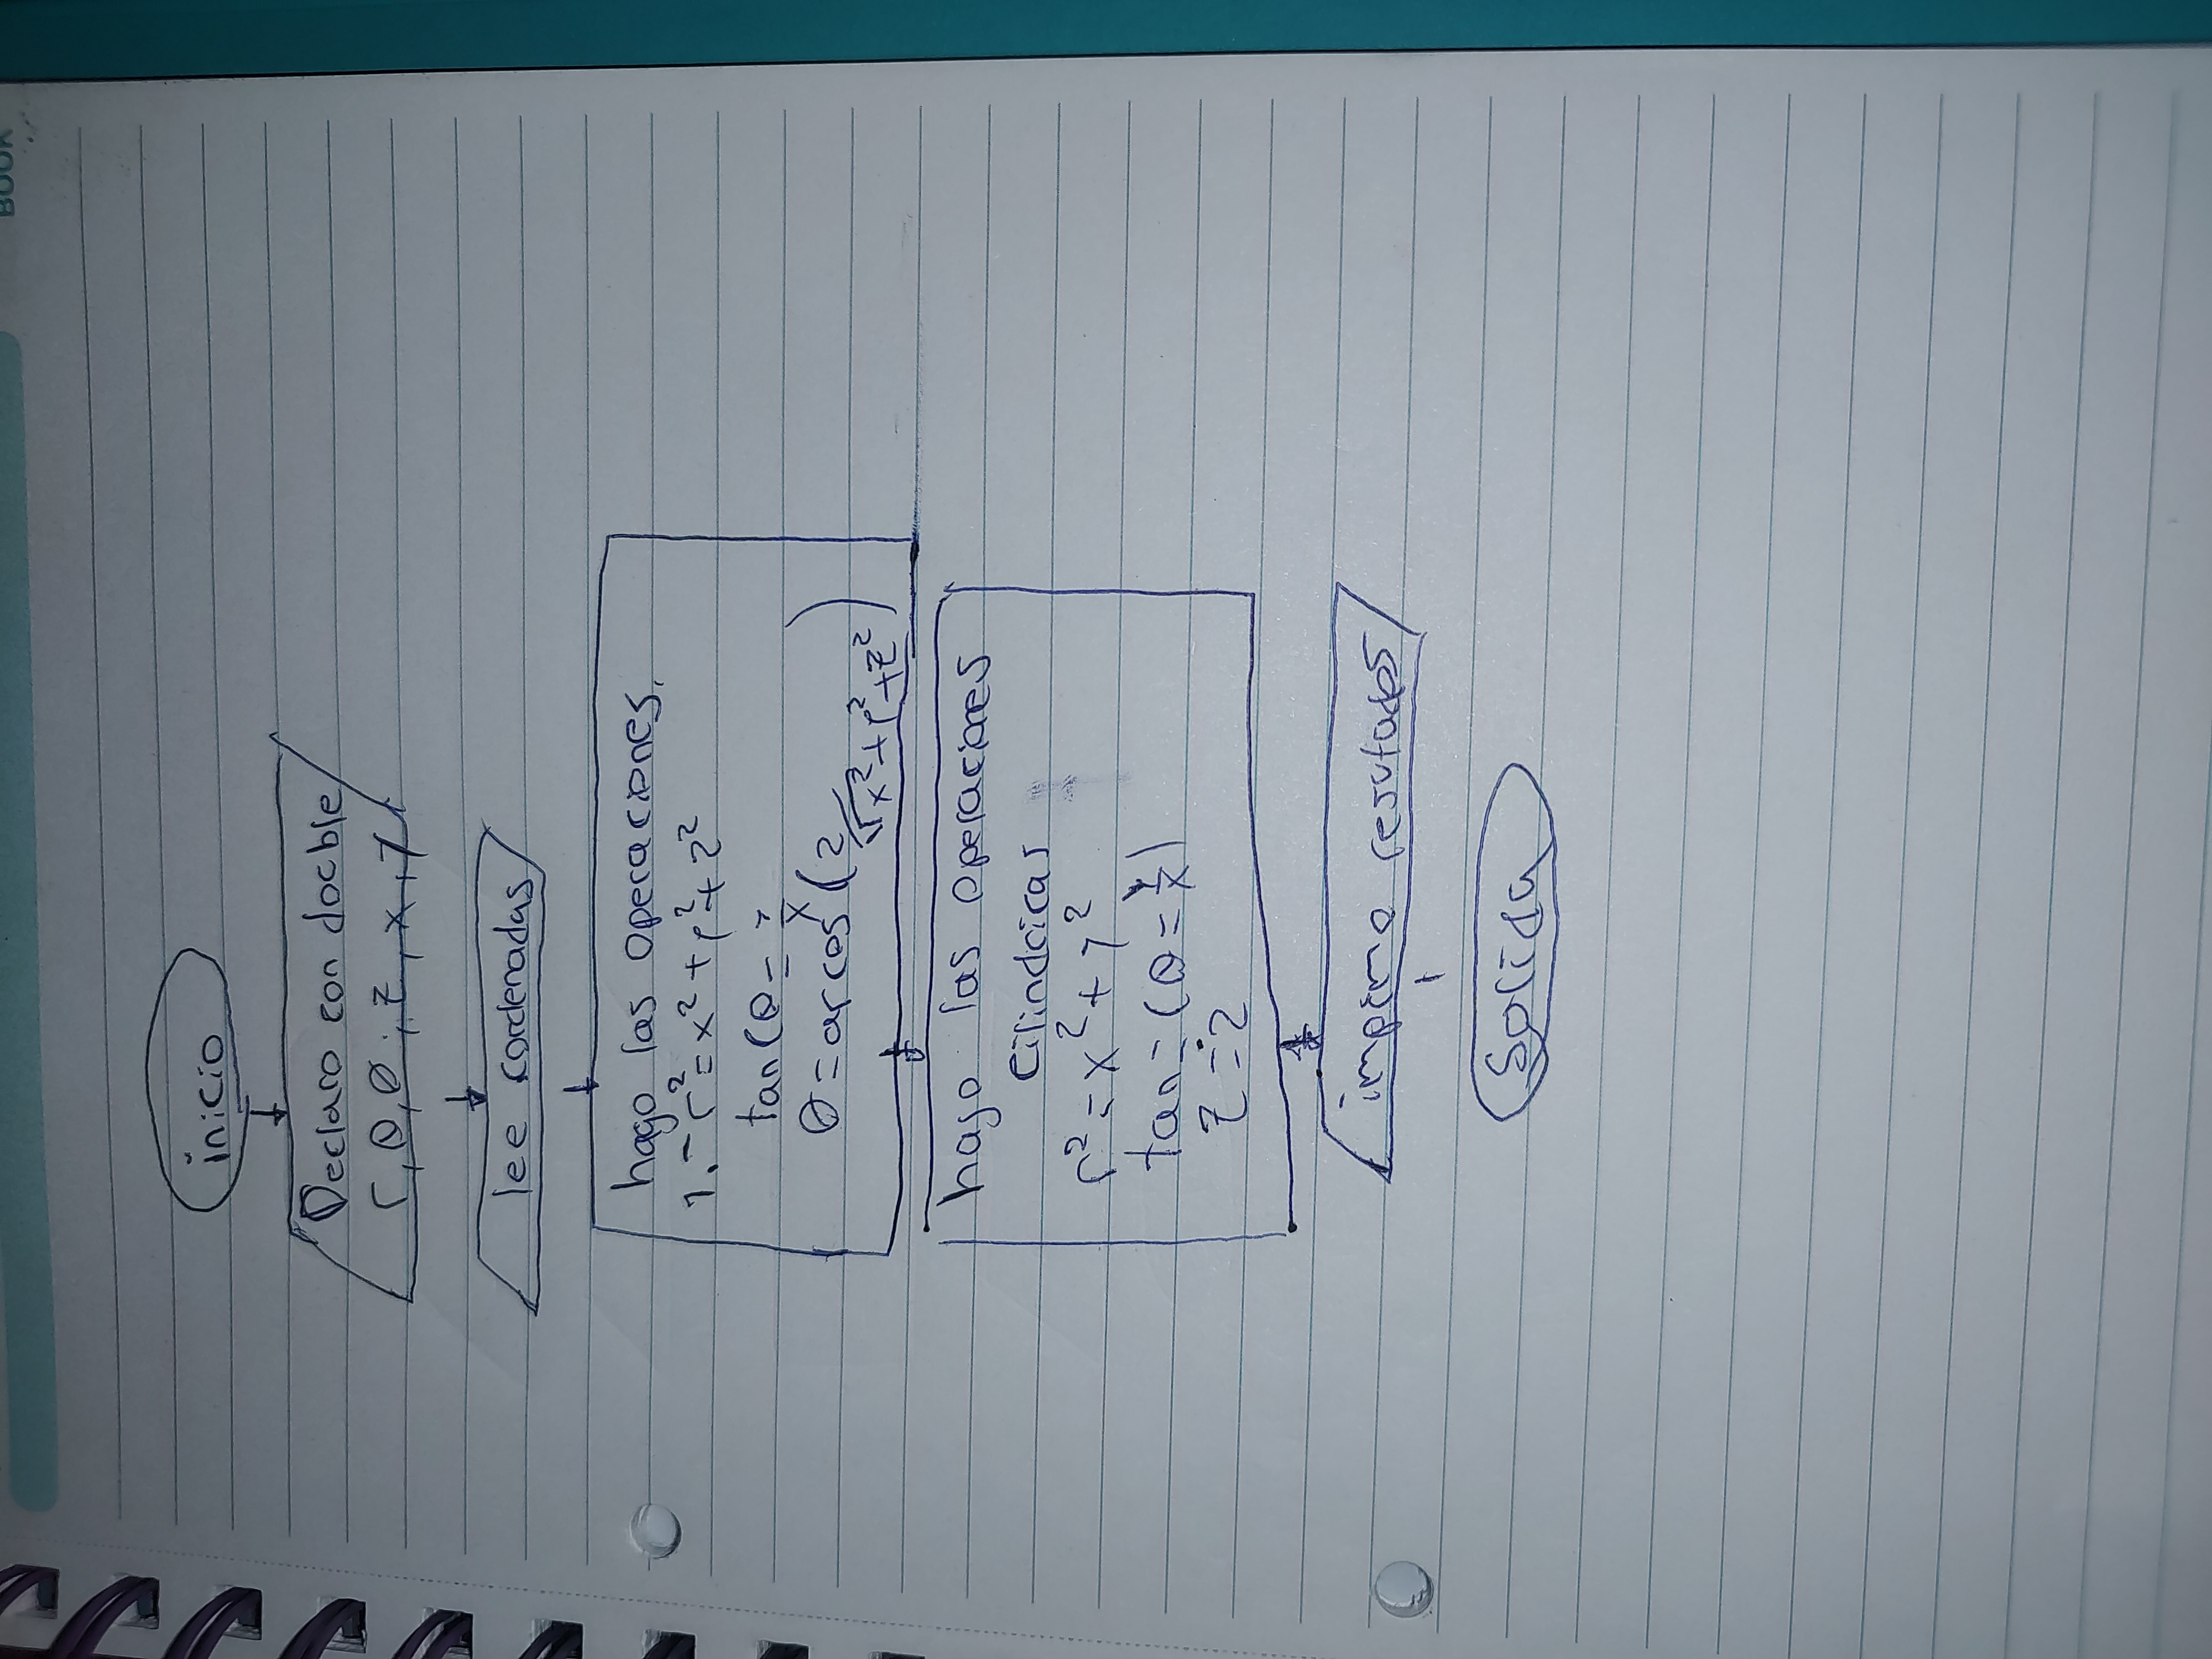 inicio
Declaro con dooble
r, θ, θ, z, x, y
lee cordenadas
hago las operaciones,
1.- r² = x² + y² + z²
tan (θ = y/x
θ = arcos (z
√x² + y² + z² )
hago las operaciones
cilindricas
r² = x² + y²
tan = (θ = y/x)
z = z
imprimo resutados
Salida
BOOK